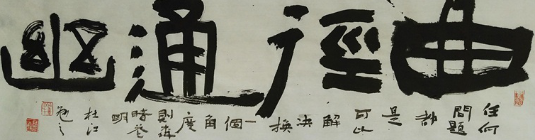 曲徑通幽
任何
問題
都
是
可以
解
決
換
一
個
角
度
則
時
明
杜江